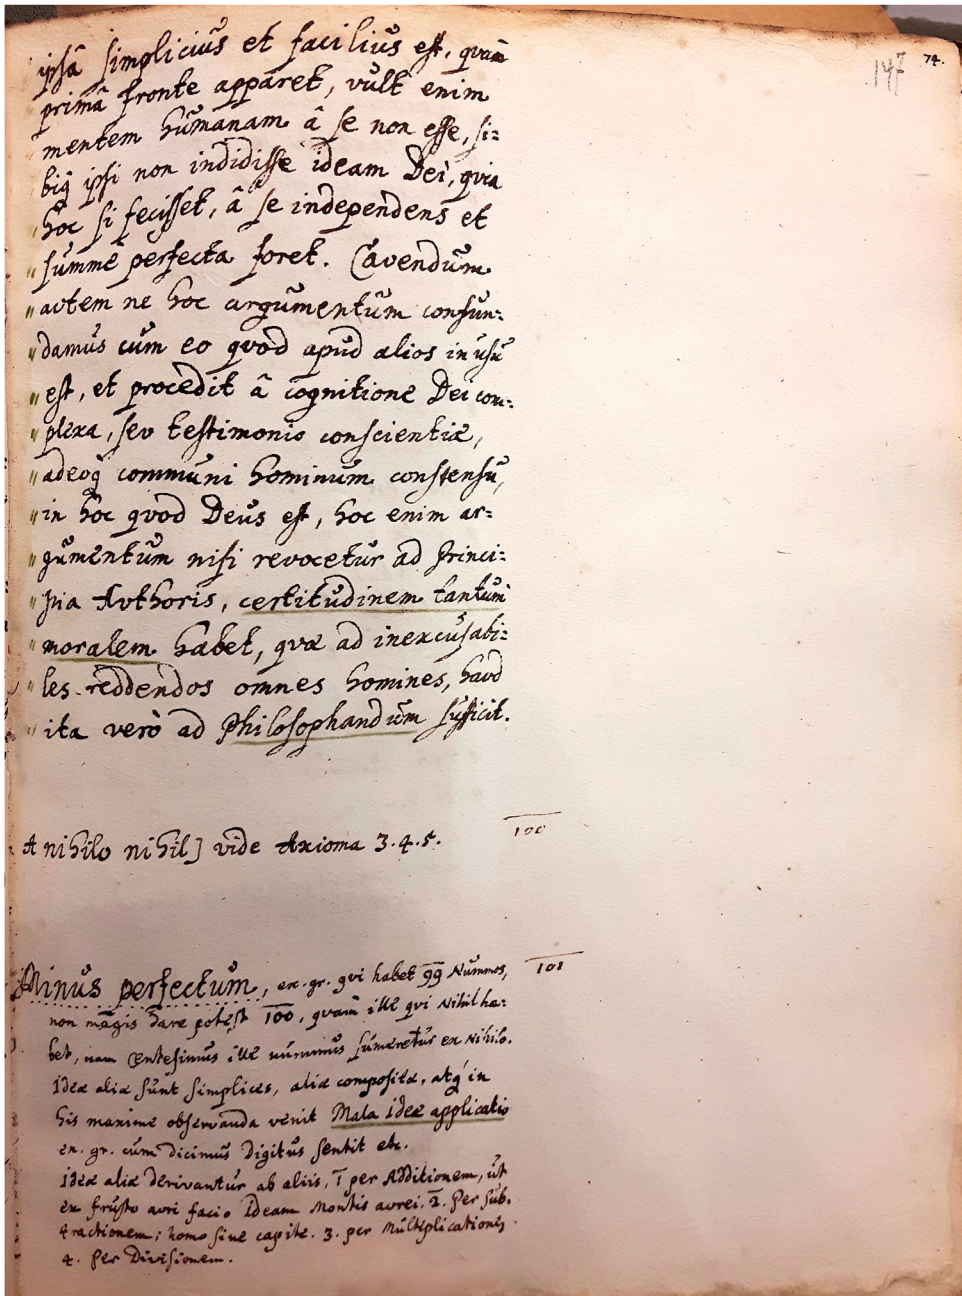 147 74.
ipsâ simplicius et facilius est, quam
primâ fronte apparet, vult enim
mentem humanam â se non esse, si=
biq ipsi non indidisse ideam Dei, qvia
hoc si fecisset, â se independens et
summe perfecta foret. Cavendum
autem ne hoc argumentum confun=
damus cum eo qvod apud alios in usu
est, et procedit â cognitione Dei com=
plexa, seu testimonio conscientiæ,
adeoq communi hominum constensu,
in hoc qvod Deus est, hoc enim ar=
gumentum nisi revocetur ad Princi=
pia Authoris, certitudinem tantum
moralem habet, qvæ ad inexcusabi=
les reddendos omnes homines, haud
ita verò ad Philosophandum sufficit.
A nihilo nihil] vide Axioma 3.4.5.
100
Minus perfectum, ex. gr. qvi habet 99 Nummos,
101
non magis dare potest 100, quam ille qvi Nihil ha=
bet, nam Centesimus ille nummus sumeretur ex Nihilo.
Ideæ aliæ sunt simplices, aliæ compositæ, atq in
his maxime observanda venit Mala ideæ applicatio
ex. gr. cum dicimus Digitus sentit etc.
ideæ aliæ derivantur ab aliis, 1 per Additionem, ut
ex frusto auri facio Ideam Montis aurei. 2. Per Sub.
tractionem; homo sine capite. 3. per Multiplicationem
4. Per Divisionem.